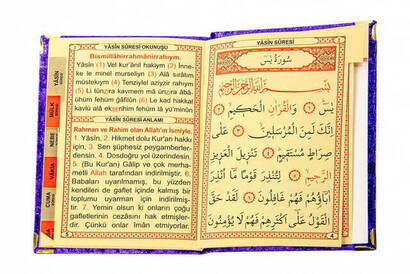 YÂSÎN SÛRESİ OKUNUŞU
Bismillâhirrahmânirrahîm.
Yâsîn (1) Vel kur'ânil hakiym (2) İnne-
ke le minel murseliyn (3) Alâ sırâtım
müstekıym (4) Tenziylel aziyzir rahıym
(5) Li tünzira kavmem mâ ünzira âbâ-
ühüm fehüm ğâfilûn (6) Le kad hakkal
kavlü alâ ekserihim fehüm lâ yü'minûn
YÂSÎN SÛRESİ ANLAMI
Rahman ve Rahim olan Allah'ın İsmiyle.
1. Yâsîn, 2. Hikmet dolu Kur'an hakkı
için, 3. Sen şüphesiz peygamberler-
densin. 4. Dosdoğru yol üzerindesin.
5. (Bu Kur'an) Gâlip ve çok merha-
metli Allah tarafından indirilmiştir. 6.
Babaları uyarılmamış, bu yüzden
kendileri de gaflet içinde kalmış bir
toplumu uyarman için indirilmiş-
tir. 7. Yemin olsun ki onların çoğu
gafletlerinin cezasını hak etmişler-
dir. Çünkü onlar îman etmiyorlar.
4
YÂSÎN
MÜLK
NEBE
VÂKIA
CUMA
YÂSÎN SÛRESİ
سُورَةُ يٰسٓ
بِسْمِ اللّٰهِ الرَّحْمٰنِ الرَّحِيمِ
يٰسٓ ﴿١﴾ وَالْقُرْاٰنِ الْحَكِيمِ ﴿٢﴾
اِنَّكَ لَمِنَ الْمُرْسَلِينَ ﴿٣﴾ عَلٰى
صِرَاطٍ مُسْتَقِيمٍ ﴿٤﴾ تَنْزِيلَ الْعَزِيزِ
الرَّحِيمِ ﴿٥﴾ لِتُنْذِرَ قَوْمًا مَٓا اُنْذِرَ
اٰبَٓاؤُ۬هُمْ فَهُمْ غَافِلُونَ ﴿٦﴾ لَقَدْ حَقَّ
الْقَوْلُ عَلٰٓى اَكْثَرِهِمْ فَهُمْ لَا يُؤْمِنُونَ
5